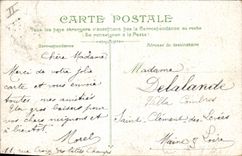 CARTE POSTALE
Tous les pays étrangers n'acceptent pas la Correspondance au recto
(Se renseigner à la Poste)
Correspondance
Adresse du destinataire
Chère Madame
Merci de votre jolie
carte et vous envoie
toutes mes amitiés
gros baisers pour
vos chers mignons et
à bientôt
Morel
11 rue Croix des Petits Champs
Madame
Delalande
Villa
Saint Clément des Levées
Maine & Loire